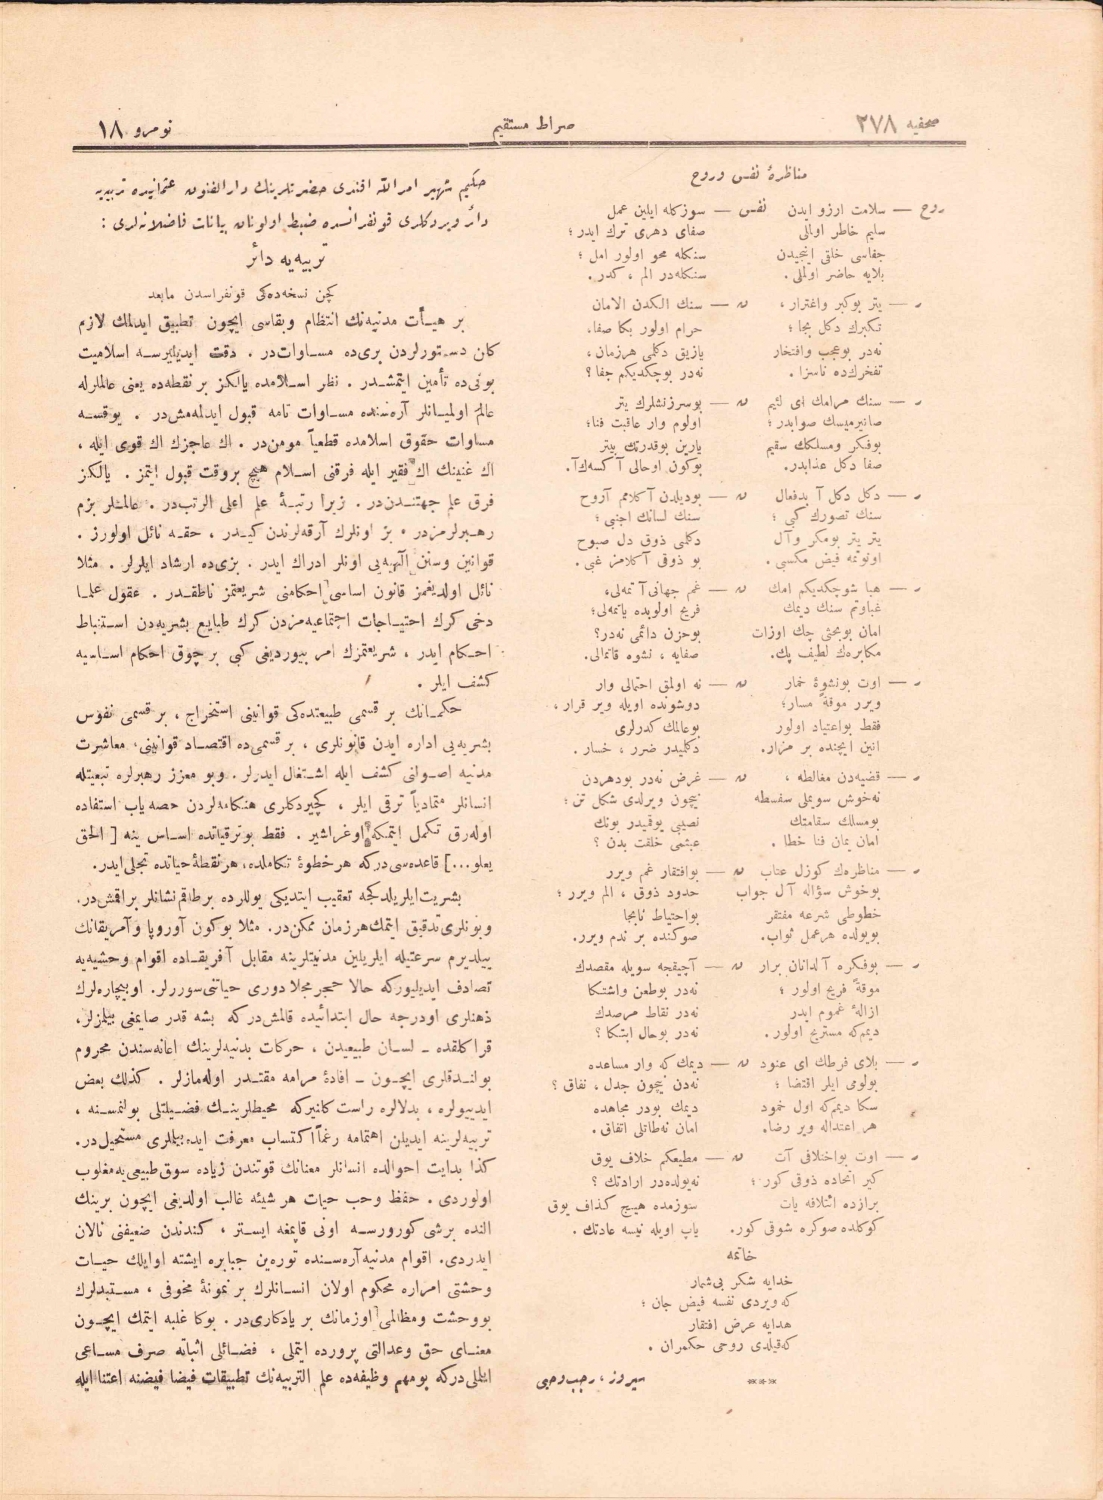 صحفیه ٢٧٨
صراط مستقیم
نومرو ١٨
مناظرهٔ نفس وروح
روح — سلامت ارزو ایدن
سلیم خاطر اولملی
جفاسی خلقی انجیدن
بلایه حاضر اولملی .
نفس — سوزکمله ایلین عمل
صفای دهری ترك ایدر ؛
سنکله محو اولور امل ؛
سنکله‌در الم ، کدر .
ر — یتر بوکبر واغترار ،
تکبرك دکل بجا ؛
نه‌در بوعجب وافتخار
تفخرك‌ده ناسزا .
ن — سنك الکدن الامان
حرام اولور بکا صفا،
یازیق دکلمی هرزمان ،
نه‌در بوچکدیکم جفا ؟
ر — سنك مرامك ای لئیم
صانیرمیسك صوابدر ؛
بوفکر ومسلکك سقیم
صفا دکل عذابدر.
ن — بوسرزنشلرك یتر
اولوم وار عاقبت فنا؛
یارین بوقدرتك بیتر
بوکون اوحالی آ کسه‌ك‌آ.
ر — دکل دکل آ بدفعال
سنك تصورك کبی ؛
یتر یتر بومکر وآل
اونوتمه فیض مکسبی .
ن — بودیلدن آکلامم آروح
سنك لسانك اجنبی ؛
دکلمی ذوق دل صبوح
بو ذوقی آکلامز غبی .
ر — هبا شوچکدیکم امك
غباوتم سنك دیمك
امان بوبحثی چك اوزات
مکابره‌ك لطیف پك.
ن — غم جهانی آ تمه‌لی،
فریح اولوبده یاتمه‌لی؛
بوحزن دائمی نه‌در؟
صفایه ، نشوه قاتمالی.
ر — اوت بونشوهٔ خمار
ویرر موقةً مسار؛
فقط بواعتیاد اولور
انین ایچنده بر مزار.
ن — نه اولمق احتمالی وار
دوشونده اویله ویر قرار ،
بوعالمك کدرلری
دکلمیدر ضرر ، خسار .
ر — قضیه‌دن مغالطه ،
نه‌خوش سویملی سفسطه
بومسلك سقامتك
امان یمان فنا خطا .
ن — غرض نه‌در بودهردن
نیچون ویرلدی شکل تن ؛
نصیبی یوقمیدر بونك
عبثمی خلقت بدن ؟
ر — مناظره‌ك کوزل عتاب
بوخوش سؤاله آل جواب
خطوطی شرعه مفتقر
بویولده هرعمل ثواب.
ن — بوافتقار غم ویرر
حدود ذوق ، الم ویرر ؛
بواحتیاط نابجا
صوکنده بر ندم ویرر.
ر — بوفکره آلدانان برار
موقةً فریح اولور ؛
ازالهٔ غموم ایدر
دیمم‌که مستریح اولور .
ن — آچیقجه سویله مقصدك
نه‌در بوطعن واشتکا
نه‌در نقاط مرصدك
نه‌در بوحال ابتکا ؟
ر — بلای فرطك ای عنود
بولومی ایلر اقتضا ؛
سکا دیمم‌که اول خمود
هر اعتداله ویر رضا.
ن — دیمك که وار مساعده
نه‌دن نیچون جدل ، نفاق ؟
دیمك بودر مجاهده
امان نه‌طاتلی اتفاق .
ر — اوت بواختلافی آت
کبر اتحاده ذوقی کور ؛
برازده ائتلافه یات
کوکلده صوکره شوقی کور.
ن — مطیعکم خلاف یوق
نه‌یولده‌در ارادتك ؟
سوزمده هیچ کذاف یوق
یاپ اویله نیسه عادتك .
خاتمه
خدایه شکر بی‌شمار
که ویردی نفسه فیض جان ؛
هدایه عرض افتقار
که‌قیلدی روحی حکمران .
سیروز ، رجب وحبی
حکیم شهیر امرالله افندی حضرتلرینك دارالفنون عثمانیده تربیه‌یه
دائر ویردکلری قونفرانسده ضبط اولونان بیانات فاضلانه‌لری :
تربیه‌یه دائر
کچن نسخه‌ده‌کی قونفراسدن مابعد
بر هیـأت مدنیه‌نك انتظام وبقاسی ایچون تطبیق ایدلمك لازم
کلن دستورلردن بری‌ده مساوات‌در . دقت ایدیلیرسه اسلامیت
بونی‌ده تأمین ایتمشدر . نظر اسلامده یالکز بر نقطه‌ده یعنی عالمارله
عالم اولمیانلر آره‌سنده مساوات تامه قبول ایدلمه‌مش‌در . یوقسه
مساوات حقوق اسلامده قطعیاً مومن‌در . اك عاجزك اك قوی ایله ،
اك غنینك اك فقیر ایله فرقنی اسلام هیچ بروقت قبول ایتمز . یالکز
فرق علم جهتندن‌در . زیرا رتبهٔ علم اعلی الرتب‌در . عالملر بزم
رهبرلرمزدر . بز اونلرك آرقه‌لرندن کیدر ، حقه نائل اولورز .
قوانین وسنن آلهیه‌یی اونلر ادراك ایدر . بزی‌ده ارشاد ایلرلر . مثلا
نائل اولدیغمز قانون اساسی احکامنی شریعتمز ناطقدر . عقول علما
دخی کرك احتیاجات اجتماعیه‌مزدن کرك طبایع بشریه‌دن استنباط
احکام ایدر ، شریعتمزك امر بیوردیغی کبی بر چوق احکام اساسیه
کشف ایلر .
حکمانك بر قسمی طبیعتده‌کی قوانینی استخراج ، بر قسمی نفوس
بشریه‌یی اداره ایدن قانونلری ، بر قسمی‌ده اقتصاد قوانینی، معاشرت
مدنیه اصولنی کشف ایله اشتغال ایدرلر . وبو معزز رهبرلره تبعیتله
انسانلر متمادیاً ترقی ایلر ، کچیردکلری هنکامه‌لردن حصه‌یاب استفاده
اوله‌رق تکمل ایتمکه اوغراشیر . فقط بوترقیاتده اساس ینه [ الحق
یعلو...] قاعده‌سی‌درکه هرخطوهٔ تکاملده، هرنقطهٔ حیاتده تجلی ایدر.
بشریت ایلریلدکجه تعقیب ایتدیکی یوللرده برطاقم نشانلر براقمش‌در.
وبونلری تدقیق ایتمك هرزمان ممکن‌در. مثلا بوکون آوروپا وآمریقانك
ییلدیرم سرعتیله ایلریلین مدنیتلرینه مقابل آفریقاده اقوام وحشیه‌یه
تصادف ایدیلیورکه حالا حجر مجلا دوری حیاتنی سوررلر. اوبیچاره‌لرك
ذهنلری اودرجه حال ابتدائیده قالمش‌درکه بشه قدر صایمغی بیلمزلر،
قراکلقده ـ لسان طبیعیدن ، حرکات بدنیه‌لرینك اعانه‌سندن محروم
بولندقلری ایچون ـ افادهٔ مرامه مقتدر اوله‌مازلر . کذلك بعض
ایدییولره ، بدلالره راست کلنیرکه محیطلرینك فضیلتلی بولنمسنه ،
تربیه‌لرینه ایدیلن اهتمامه رغماً اکتساب معرفت ایده‌بیلملری مستحیل‌در.
کذا بدایت احوالده انسانلر معنانك قوتندن زیاده سوق طبیعی‌یه مغلوب
اولوردی . حفظ وحب حیات هر شیئه غالب اولدیغی ایچون برینك
النده برشی کورورسه اونی قاپمغه ایستر ، کندندن ضعیفنی نالان
ایدردی. اقوام مدنیه آره‌سنده توره‌ین جبابره ایشته اوایلك حیات
وحشتی امراره محکوم اولان انسانلرك بر نمونهٔ مخوفی ، مستبدلرك
بووحشت ومظالمی اوزمانك بر یادکاری‌در . بوکا غلبه ایتمك ایچون
معنای حق وعدالتی پرورده ایتملی ، فضائلی اثباته صرف مساعی
ایتملی‌درکه بومهم وظیفه‌ده علم التربیه‌نك تطبیقات فیضا فیضنه اعتنا ایله